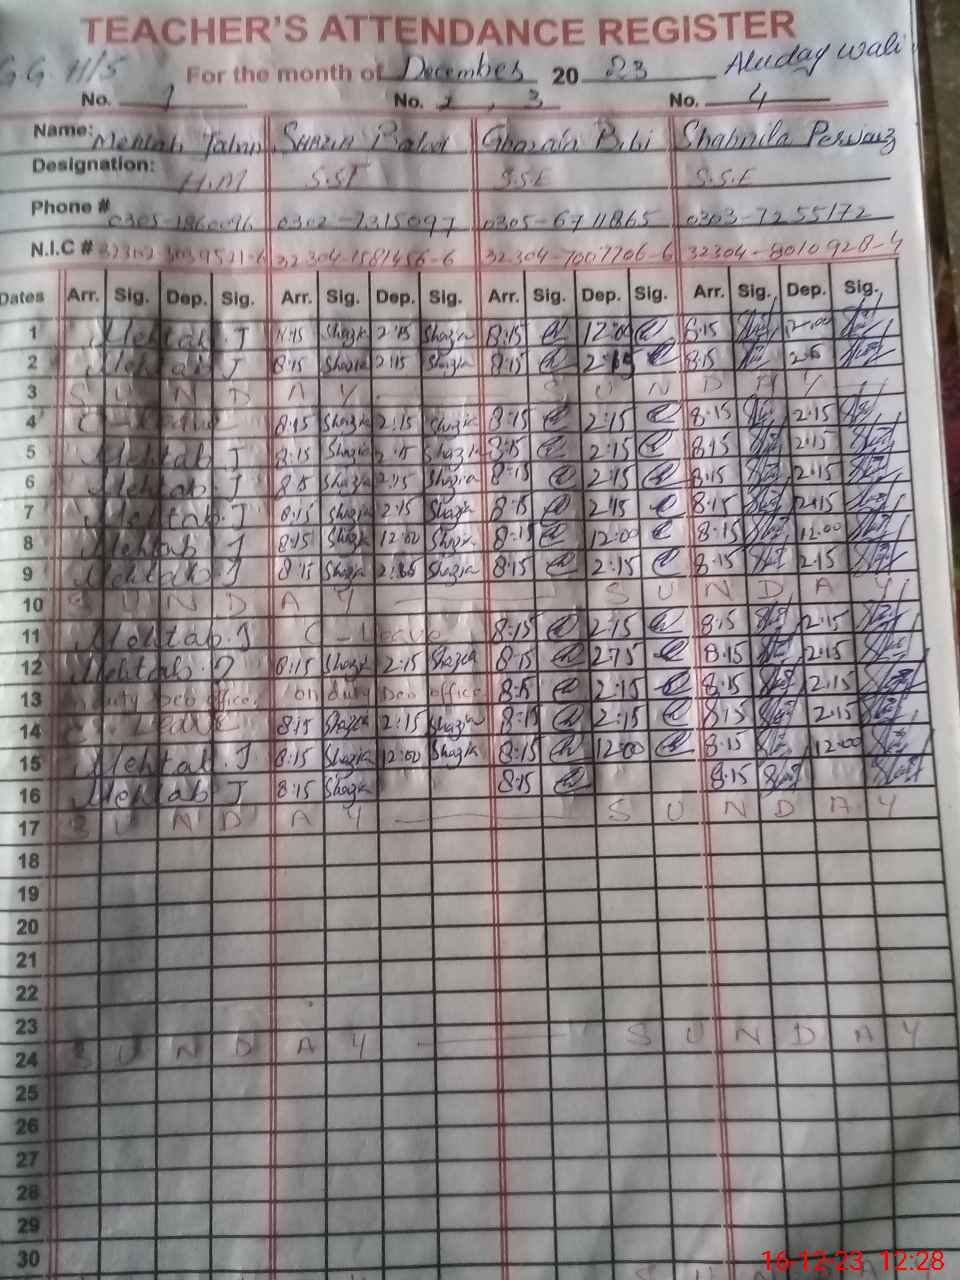 TEACHER'S ATTENDANCE REGISTER
G.G. H/S For the month of December 20 23 Aluday Wali
No. 1 No. 2, 3 No. 4
Name: Mehtab SHAZIA Bibi Shabnila Pervaiz
Designation: H.M S.S.E S.S.E
Phone # 0305-1860096 0302-7315097 0305-6711865 0303-7255172
N.I.C # 32304-1581456-6 32304-7007706-6 32304-8010928-4
Dates Arr. Sig. Dep. Sig. Arr. Sig. Dep. Sig. Arr. Sig. Dep. Sig. Arr. Sig. Dep. Sig.
1 Mehtab.J 8:15 Shazia 2:15 Shazia 8:15 12:00 8:15 12:00
2 Mehtab J 8:15 Shazia 2:15 Shazia 8:15 2:15 8:15
3 S U N D A Y S U N D A Y
4 8:15 Shazia 2:15 Shazia 8:15 2:15 8:15 2:15
5 Mehtab J 8:15 Shazia 2:15 Shazia 8:15 2:15 8:15 2:15
6 Mehtab.J 8:15 Shazia 2:15 Shazia 8:15 2:15 8:15 2:15
7 Mehtab.J 8:15 Shazia 2:15 Shazia 8:15 2:15 8:15 2:15
8 Mehtab J 8:15 Shazia 12:00 Shazia 8:15 12:00 8:15 12:00
9 Mehtab.J 8:15 Shazia 2:15 Shazia 8:15 2:15 8:15 2:15
10 S U N D A Y S U N D A Y
11 Mehtab.J C-Leave 8:15 2:15 8:15 2:15
12 Mehtab.J 8:15 Shazia 2:15 Shazia 8:15 2:15 8:15 2:15
13 duty Deo office. on duty Deo office 8:15 2:15 8:15 2:15
14 Leave 8:15 Shazia 2:15 Shazia 8:15 2:15 8:15 2:15
15 Mehtab.J 8:15 Shazia 12:00 Shazia 8:15 12:00 8:15 12:00
16 Mehtab J 8:15 Shazia 8:15 8:15
17 S U N D A Y S U N D A Y
18
19
20
21
22
23
24 S U N D A Y S U N D A Y
25
26
27
28
29
30
16-12-23 12:28